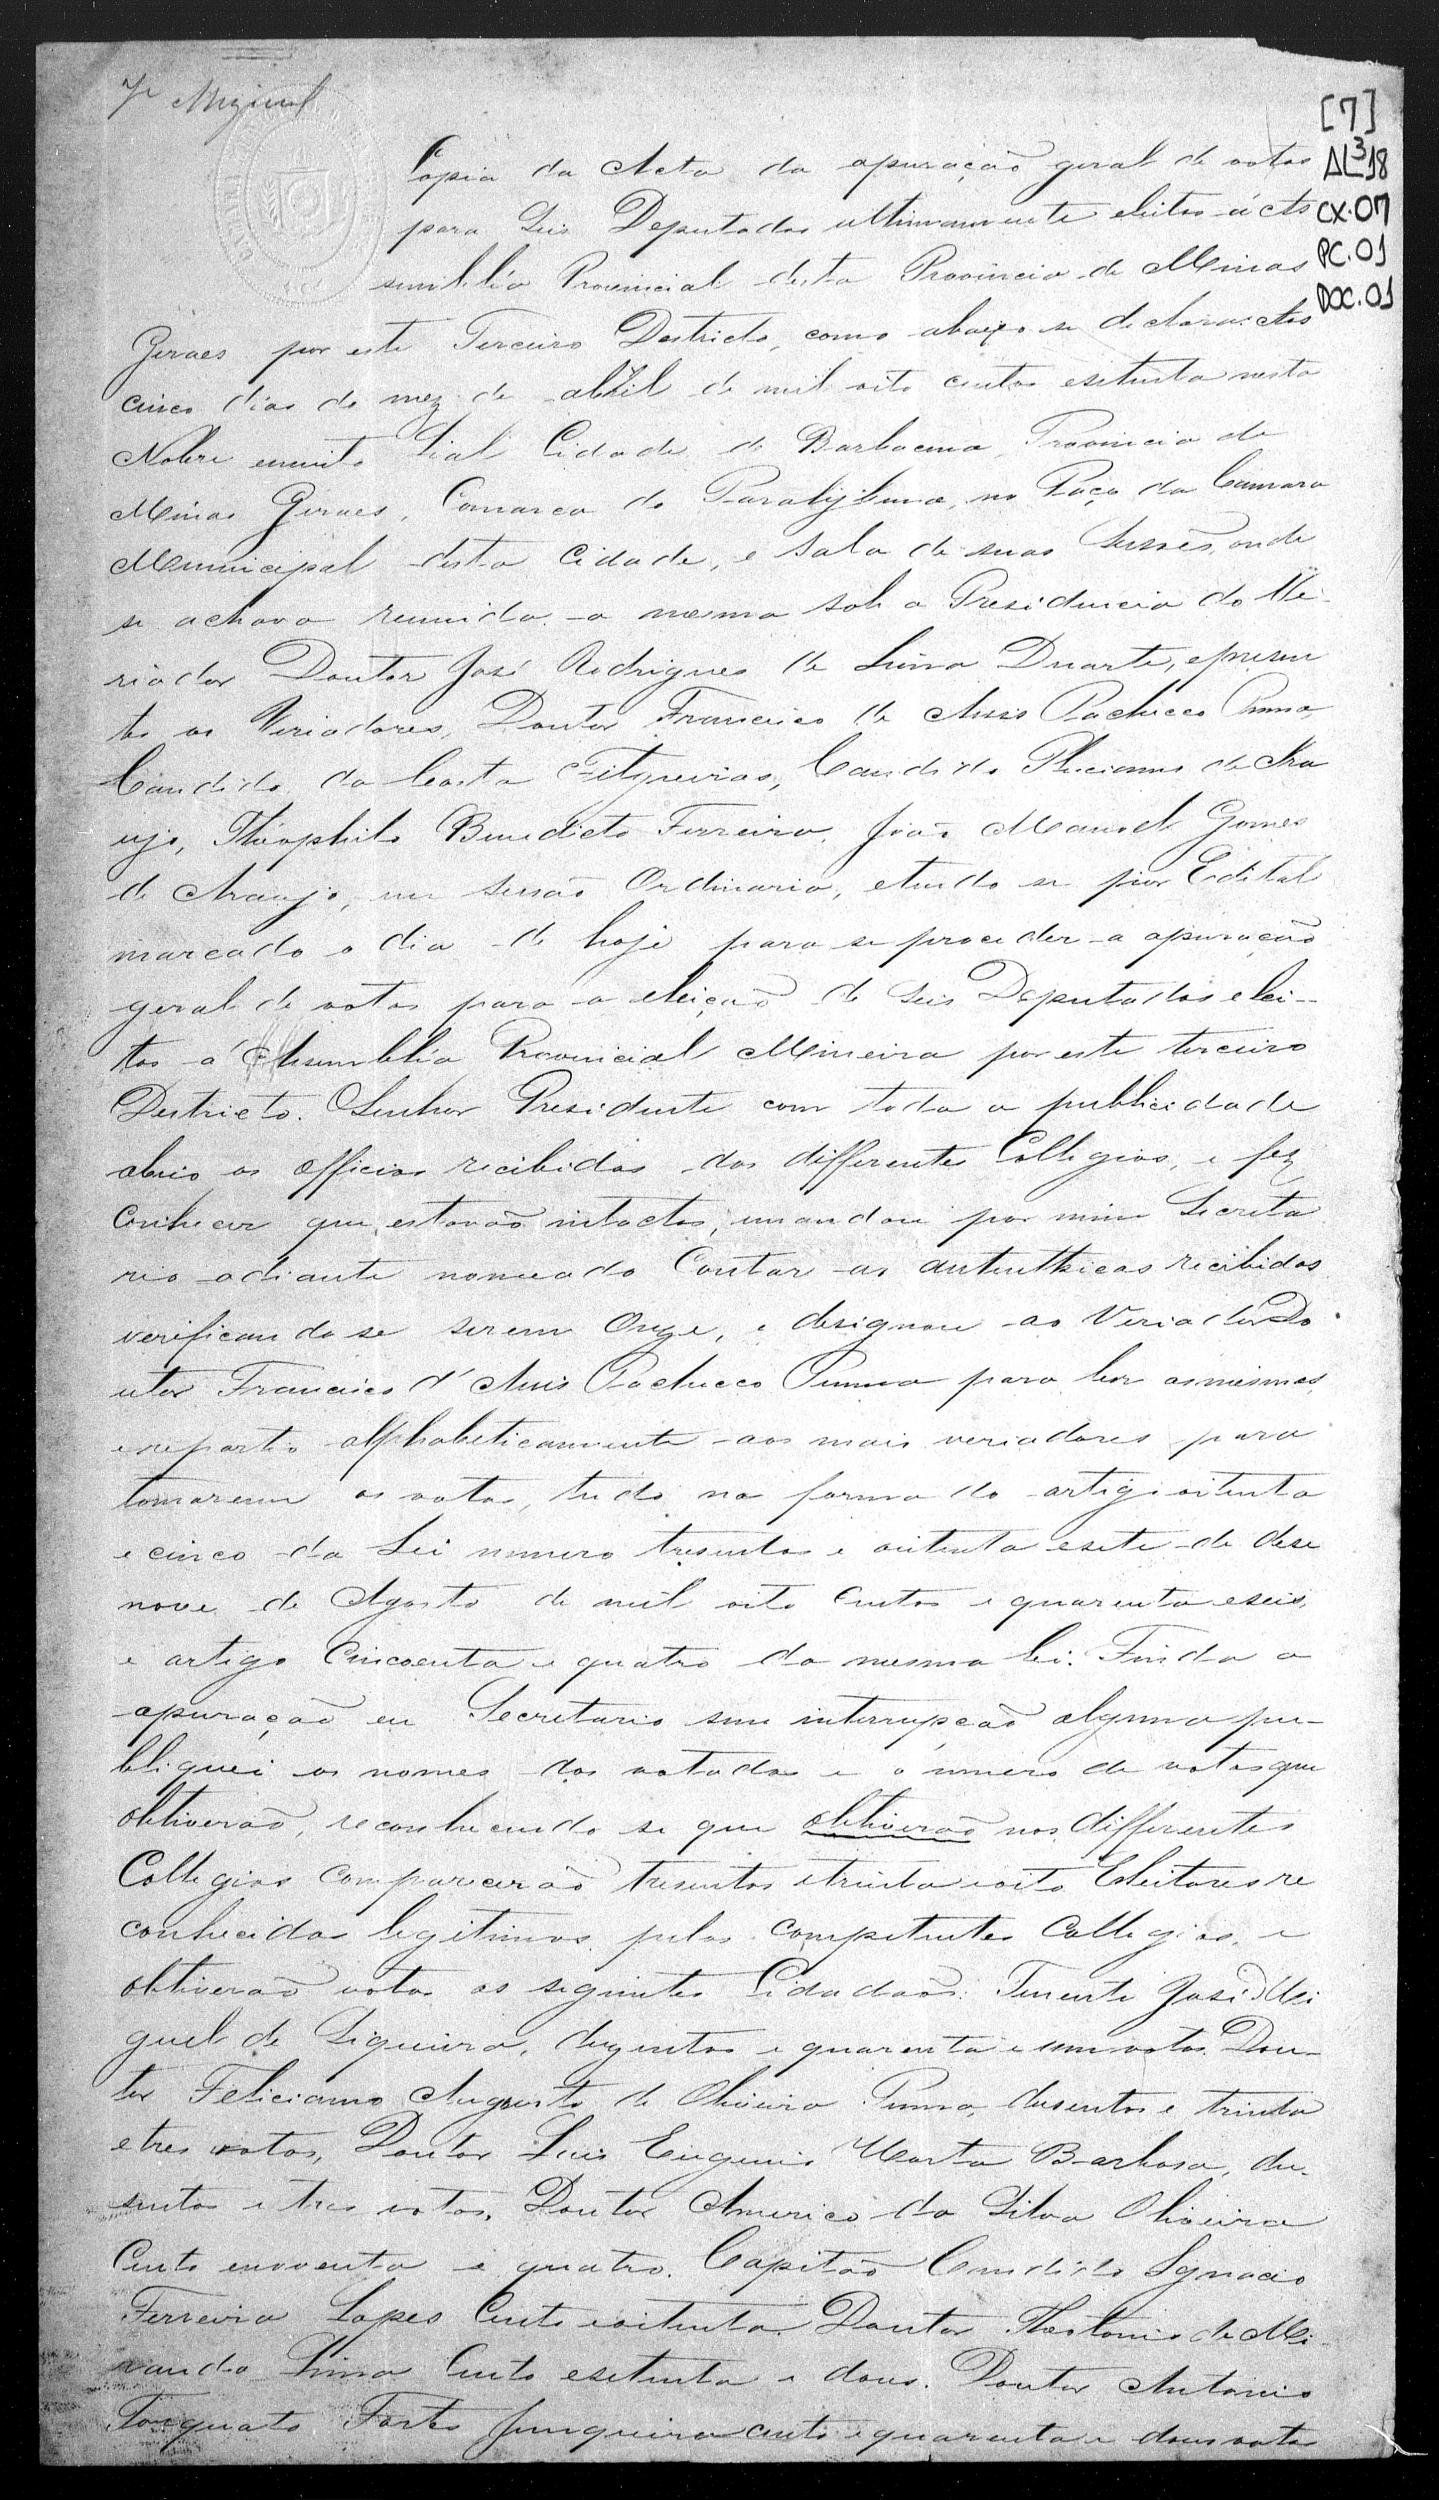 [7]
AL318
CX.07
PC.01
DOC.01
Copia da Acta da apuração geral de votos
para Seis Deputados ultimamente eleitos á As
sembléa Provincial desta Provincia de Minas
Geraes por este Terceiro Destricto, como abaixo se declara. Aos
cinco dias do mez de abril de mil oito centos esetenta nesta
Nobre emuito Lial Cidade de Barbacena, Provincia de
Minas Geraes, Comarca do Parahybuna, no Paço da Camara
Municipal desta Cidade, e Sala de suas Sessões, onde
se achava reunida a mesma sob a Presidencia do Ve-
riador Doutor José Rodrigues de Lima Duarte, epresen
tes os Veriadores, Doutor Francisco de Assis Pacheco Penna,
Candido da Costa Filgueiras, Candido Pheciano de Ara
ujo, Théophilo Benedicto Ferreira, João Manoel Gomes
de Araujo, em sessão Ordinaria, etendo se por Edital
marcado o dia de hoje para se proceder a apuração
geral de votos para a eleição de Seis Deputados elei-
tos á Assembléa Provincial Mineira por este terceiro
Destricto. Senhor Presidente com toda a publicidade
abrio os officios recibidos dos differentes Collegios, e fez
conhecer que estavão intactos, emandou por mim Secreta
rio adiante nomeado Contar as authenticas recibidas
verificando se serem Onze, e designou ao Veriador Do
utor Francisco d'Assis Pacheco Penna para ler asmesmas,
erepartio alphabeticamente aos mais veriadores para
tomarem os votos, tudo na forma do artigo oitenta
e cinco da Lei numero tresentos e oitenta esete de dese
nove de Agosto de mil oito Centos e quarenta eseis,
e artigo Cincoenta e quatro da mesma lei. Finda a
apuração eu Secretario sem interrupção alguma pu-
bliquei os nomes dos votados e o numero de votos que
obtiverão, reconhecendo se que obtiverão nos differentes
Collegios comparecerão tresentos etrinta eoito Eleitores re
conhecidos legitimos pelos competentes Collegios, e
obtiverão votos os seguintes Cidadãos: Tenente José Mi
guel de Siqueira, dusentos e quarenta e um votos. Dou-
tor Feliciano Augusto de Oliveira Penna, dusentos e trinta
e tres votos, Doutor Luis Eugenio Horta Barbosa, du-
sentos e tres votos, Doutor Americo da Silva Oliveira
Cento enoventa e quatro. Capitão Candido Ignacio
Ferreira Lopes Cento eoitenta. Doutor Theotonio de Mi-
randa Lima Cento esetenta e dous. Doutor Antonio
Torquato Fortes Junqueira cento equarenta e dous votos